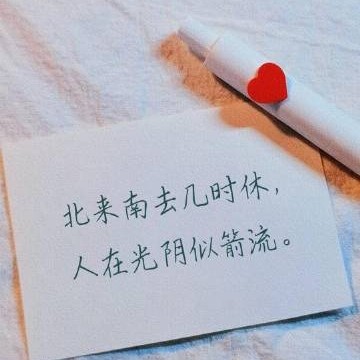 北来南去几时休，
人在光阴似箭流。